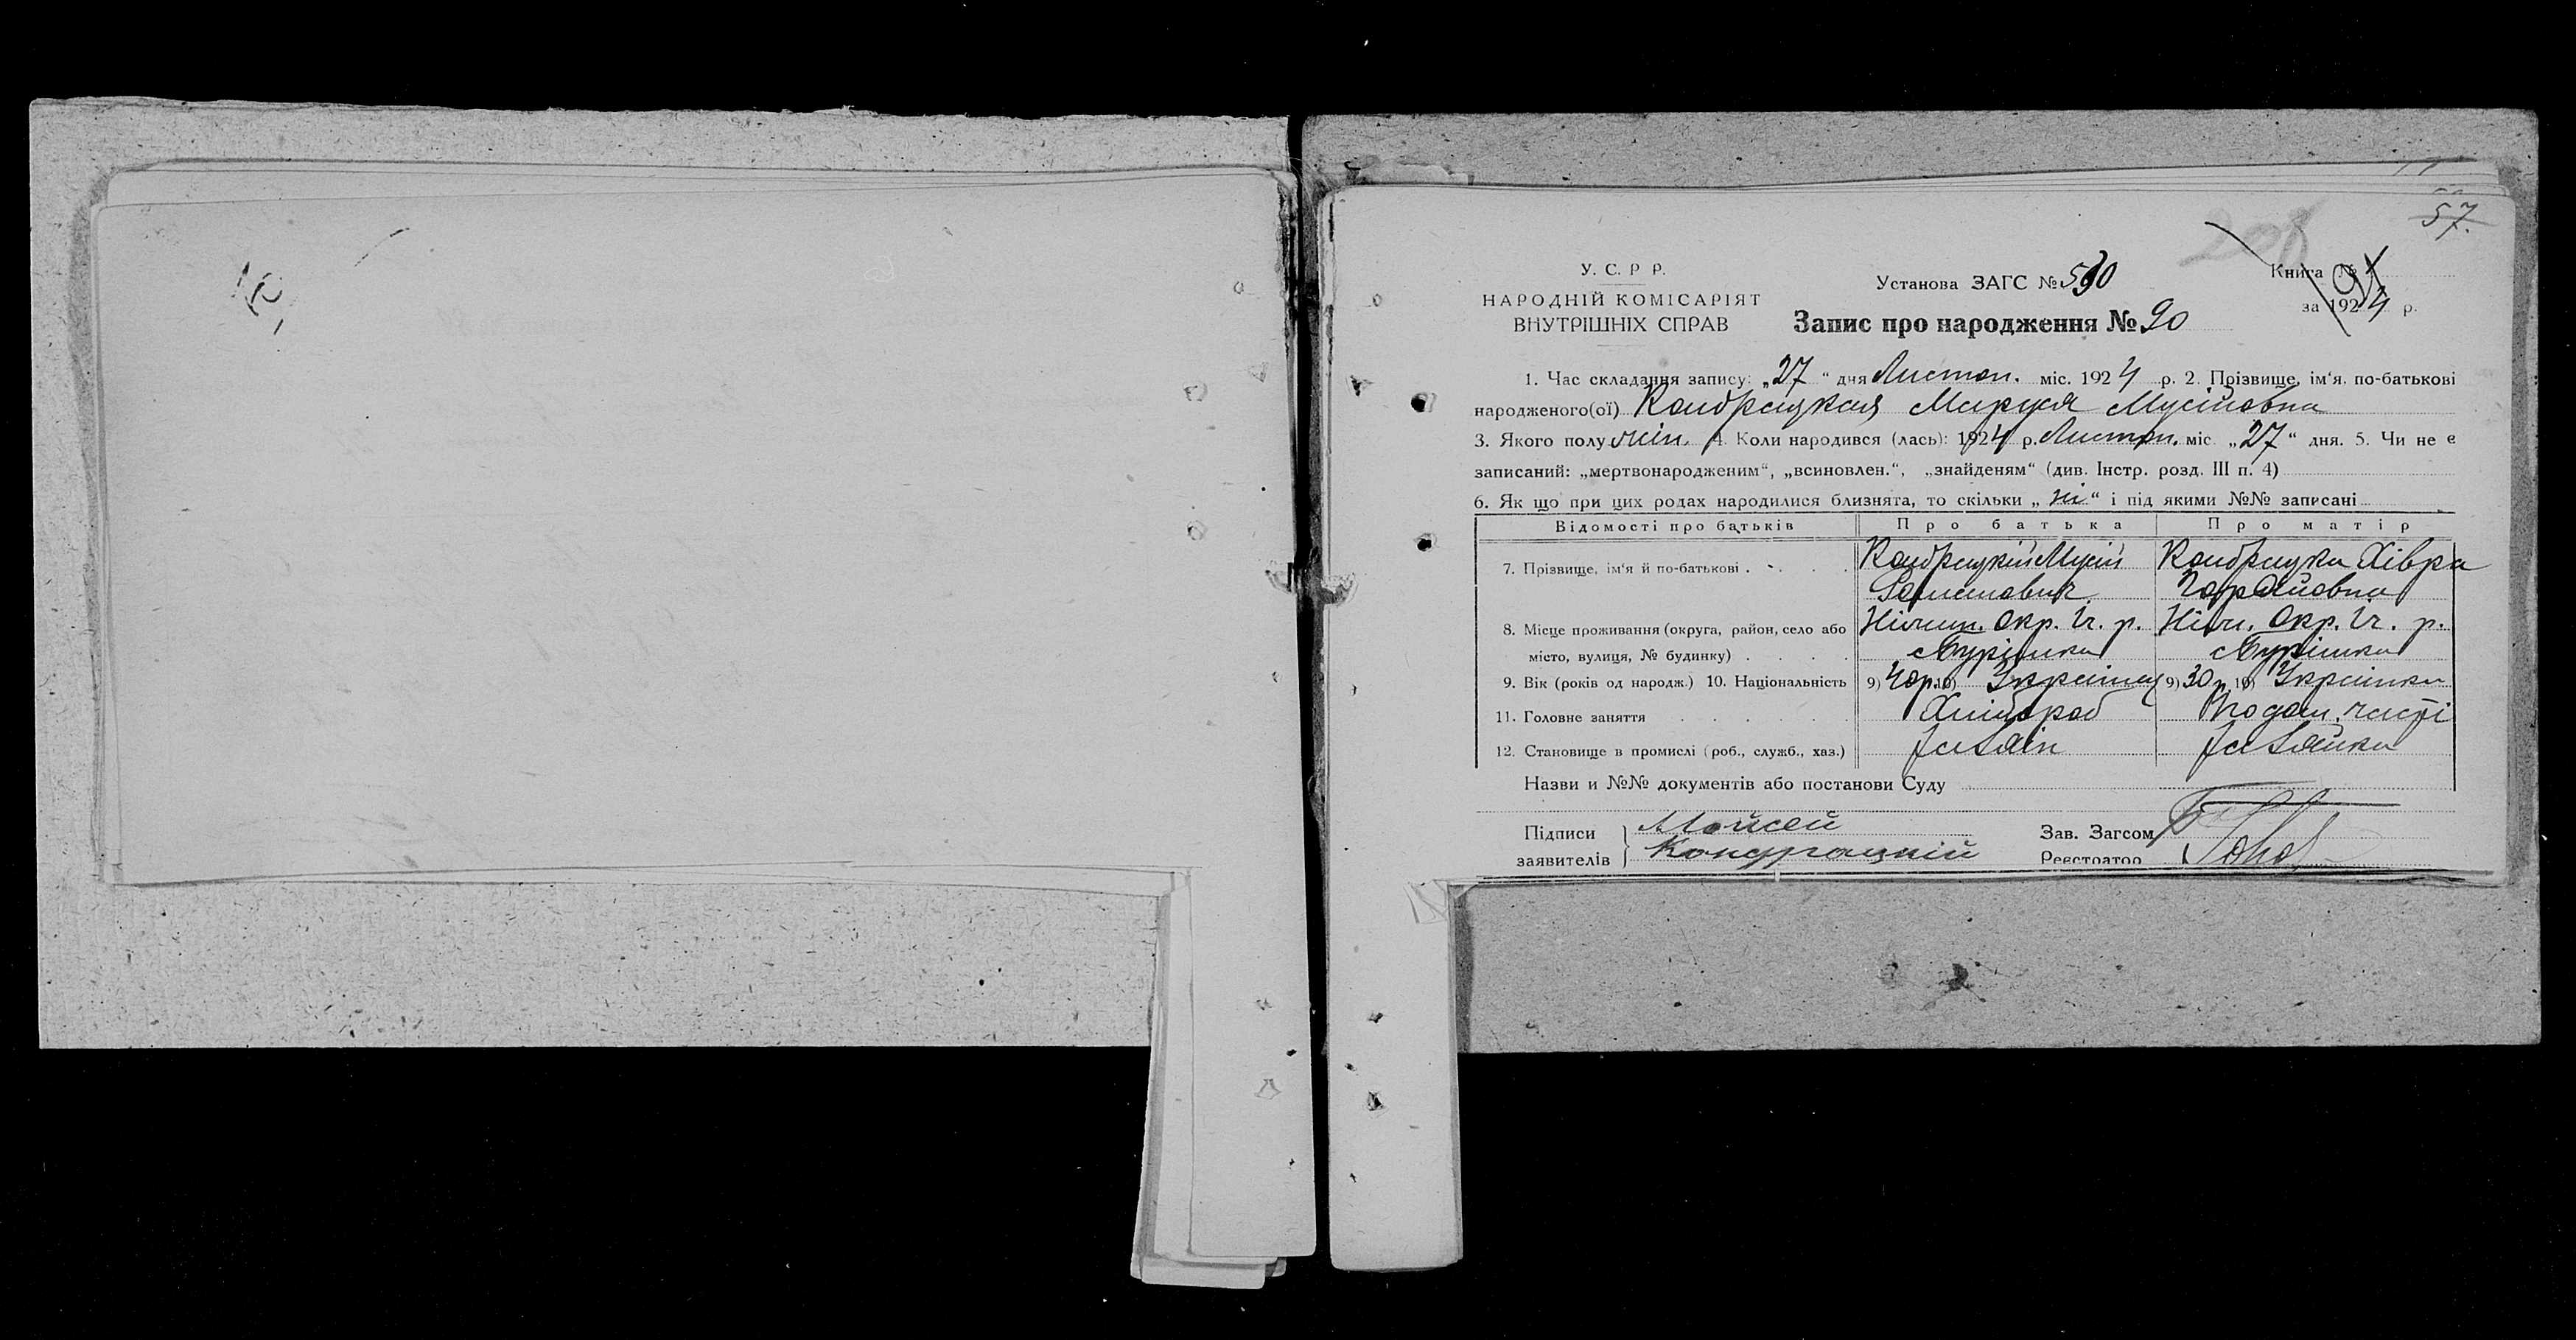 57.
У. С. Р Р.
НАРОДНІЙ КОМІСАРІЯТ
ВНУТРІШНІХ СПРАВ
Установа ЗАГС №
Книга №
за 1924 р.
Запис про народження № 90
1. Час складання запису: „27“ дня Листоп. міс. 1924 р. 2. Прізвище, ім‘я, по-батькові
народженого(ої) Кондрацкая Маруся Мусіївна
3. Якого полу жін. 4. Коли народився (лась): 1924 р. Листоп. міс. „27“ дня. 5. Чи не є
записаний: „мертвонародженим“, „всиновлен.“, „знайденям“ (див. Інстр. розд. III п. 4)
6. Як що при цих родах народилися близнята, то скільки „ні“ і під якими №№ записані
Відомості про батьків Про батька Про матір
7. Прізвище, ім‘я й по-батькові . . . . Кондрацкій Мусій Кондрацка Хівря
Гордійовна
8. Місце проживання (округа, район, село або Ніжин. Окр. Іч. р. Ніжн. Окр. Іч. р.
місто, вулиця, № будинку) . . . .
9. Вік (років од народж.) 10. Національність 9) 40р. 10) Українец 9) 30 р. 10) Українка
11. Головне заняття . . . . . . Хлібороб
12. Становище в промислі (роб., служб., хаз.) Хазяїн Хазяйка
Назви и №№ документів або постанови Суду
Підписи Мойсей Зав. Загсом
заявителів Кондрацкій Реєстратор